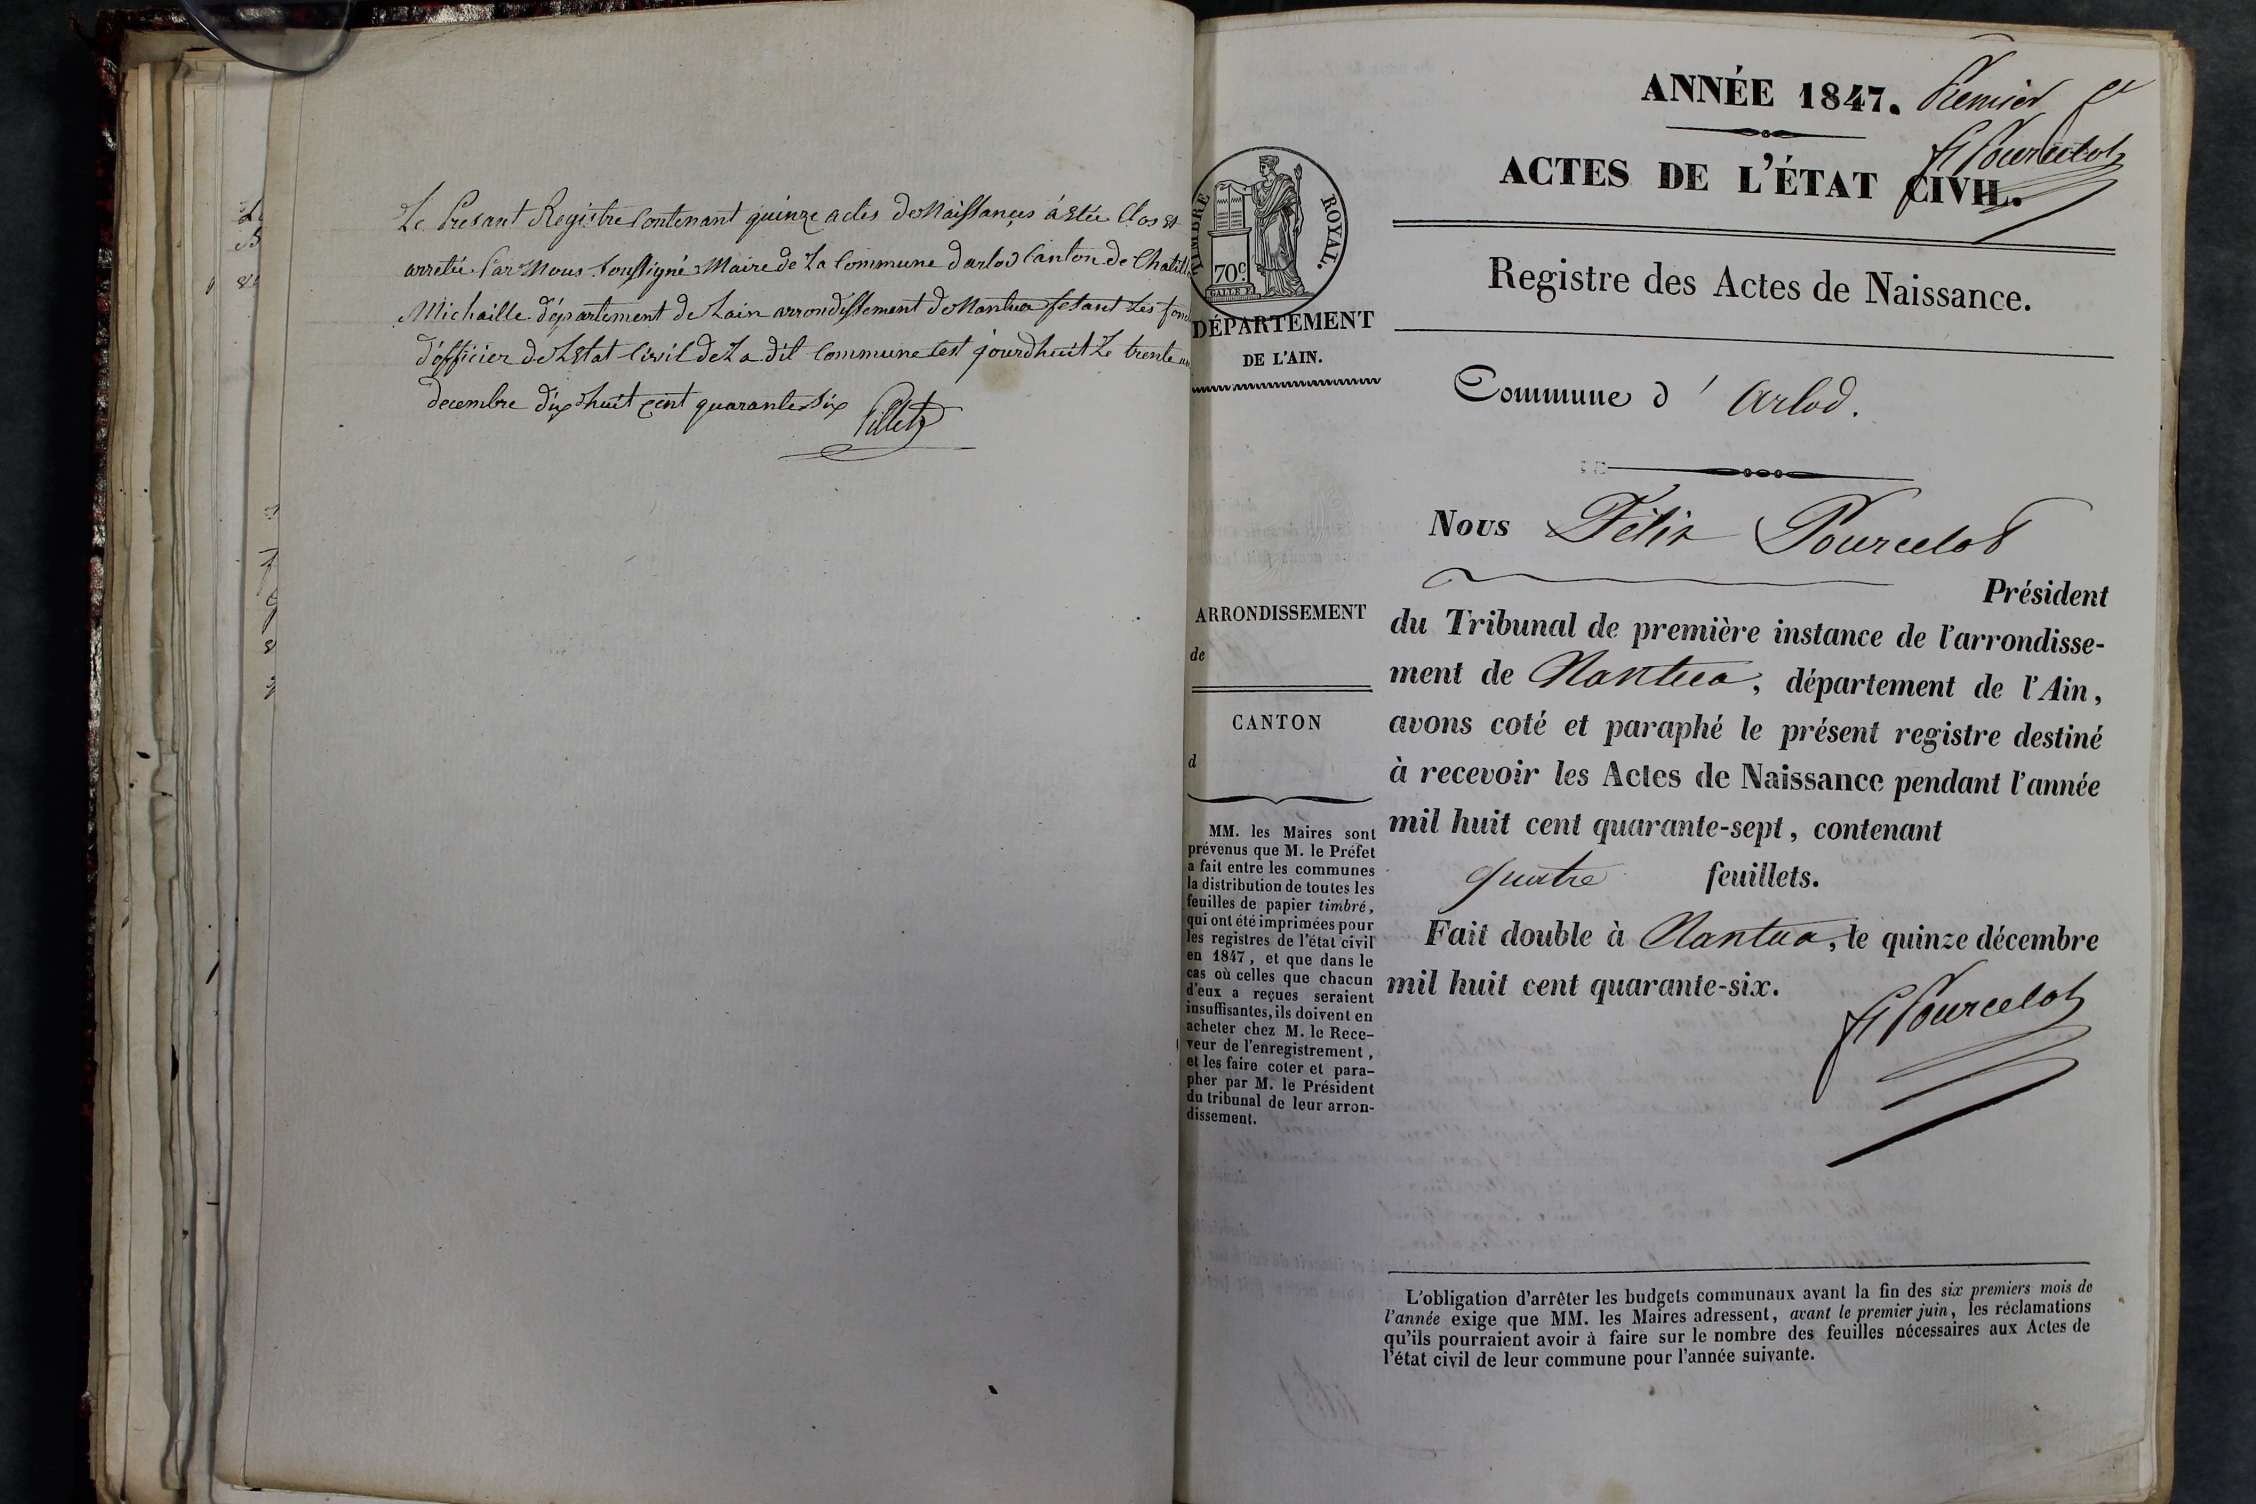 Le Presant Registre Contenant quinze actes de Naissançes á Etée Clos Et
arretée Par Nous Soussigné Maire de La Commune d'arlod Canton de Chatill
Michaille département de Lain arrondissement de Nantua fesant Les fonc
d'officier de L'Etat Civil de La dit Commune cest jourdhuit Le trente un
decembre dix huit cent quarante Six
Pillet
ANNÉE 1847. Premier ft
F Pourcelot
ACTES DE L'ÉTAT CIVIL.
Registre des Actes de Naissance.
TIMBRE ROYAL.
70c.
DÉPARTEMENT
DE L'AIN.
Commune d' Arlod.
Nous Félix Pourcelot
Président
du Tribunal de première instance de l'arrondisse-
ment de Nantua, département de l'Ain,
avons coté et paraphé le présent registre destiné
à recevoir les Actes de Naissance pendant l'année
mil huit cent quarante-sept, contenant
quatre feuillets.
Fait double à Nantua, le quinze décembre
mil huit cent quarante-six.
F Pourcelot
ARRONDISSEMENT
de
CANTON
d
MM. les Maires sont
prévenus que M. le Préfet
a fait entre les communes
la distribution de toutes les
feuilles de papier timbré,
qui ont été imprimées pour
les registres de l'état civil
en 1847, et que dans le
cas où celles que chacun
d'eux a reçues seraient
insuffisantes, ils doivent en
acheter chez M. le Rece-
veur de l'enregistrement,
et les faire coter et para-
pher par M. le Président
du tribunal de leur arron-
dissement.
L'obligation d'arrêter les budgets communaux avant la fin des six premiers mois de
l'année exige que MM. les Maires adressent, avant le premier juin, les réclamations
qu'ils pourraient avoir à faire sur le nombre des feuilles nécessaires aux Actes de
l'état civil de leur commune pour l'année suivante.